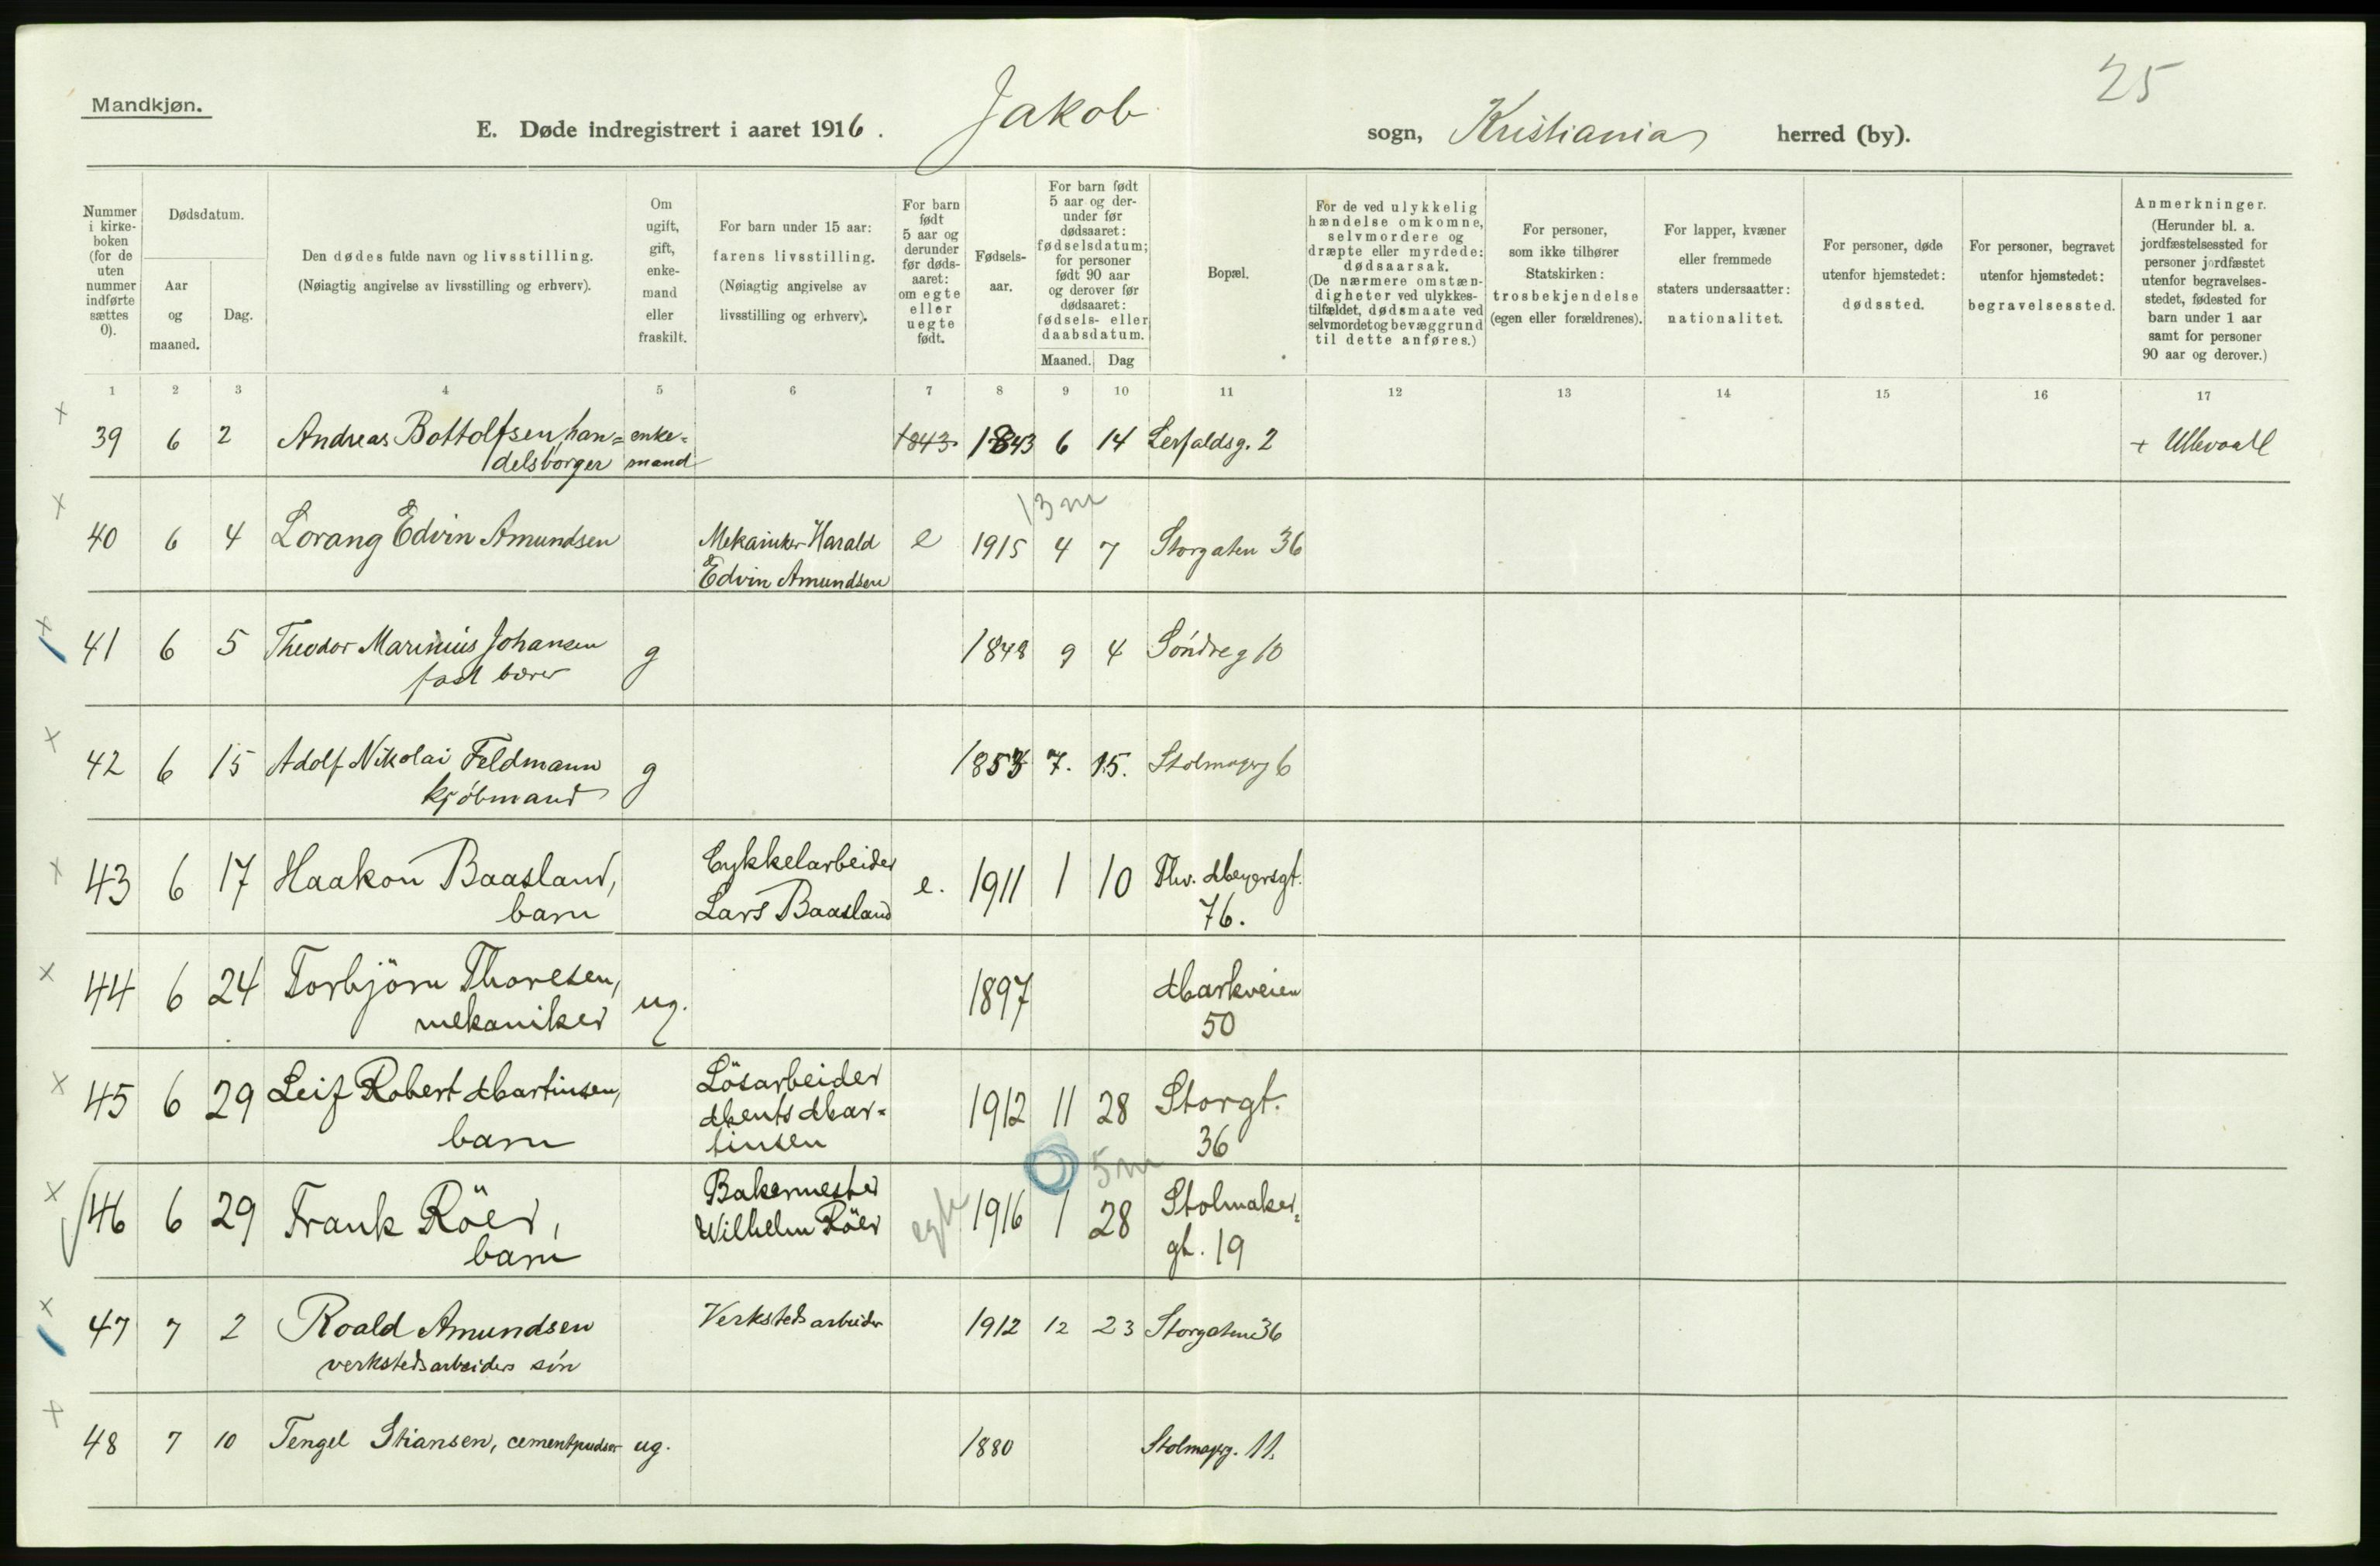 25
Mandkjøn.
E. Døde indregistrert i aaret 1916. Jakob sogn, Kristiania herred (by).
Nummer i kirke-boken (for de uten nummer indførte sættes 0).
Dødsdatum.
Aar og maaned.
Dag.
Den dødes fulde navn og livsstilling.
(Nøiagtig angivelse av livsstilling og erhverv).
Om ugift, gift, enke-mand eller fraskilt.
For barn under 15 aar: farens livsstilling.
(Nøiagtig angivelse av livsstilling og erhverv).
For barn født 5 aar og derunder før døds-aaret: om egte eller uegte født.
Fødsels-aar.
For barn født 5 aar og der-under før dødsaaret: fødselsdatum; for personer født 90 aar og derover før dødsaaret: fødsels- eller daabsdatum.
Maaned. Dag
Bopæl.
For de ved ulykkelig hændelse omkomne, selvmordere og dræpte eller myrdede: dødsaarsak.
(De nærmere omstæn-digheter ved ulykkes-tilfældet, dødsmaate ved selvmordet og bevæggrund til dette anføres.)
For personer, som ikke tilhører Statskirken: trosbekjendelse (egen eller forældrenes).
For lapper, kvæner eller fremmede staters undersaatter: nationalitet.
For personer, døde utenfor hjemstedet: dødssted.
For personer, begravet utenfor hjemstedet: begravelsessted.
Anmerkninger.
(Herunder bl. a. jordfæstelsessted for personer jordfæstet utenfor begravelses-stedet, fødested for barn under 1 aar samt for personer 90 aar og derover.)
1 2 3 4 5 6 7 8 9 10 11 12 13 14 15 16 17
x 39 6 2 Andreas Bottolfsen, han= enke= 1843 1843 6 14 Lerfaldsg. 2 + Ullevaal
delsborger mand
13 m
x 40 6 4 Lorang Edvin Amundsen Mekaniker Harald e 1915 4 7 Storgaten 36
Edvin Amundsen
x 41 6 5 Theodor Marinius Johansen g 1848 9 4 Söndreg 10
fast bærer
x 42 6 15 Adolf Nikolai Feldmann g 1853 7. 15. Stolmagerg 6
kjöbmand
x 43 6 17 Haakon Baasland, Cykkelarbeider e. 1911 1 10 Thv. Meyersgt.
barn Lars Baasland 76.
x 44 6 24 Torbjörn Thoresen, ug. 1897 Markveien
mekaniker 50
x 45 6 29 Leif Robert Martinsen, Lösarbeider 1912 11 28 Storgt.
barn Ments Mar= 36
tinsen
5 m
x 46 6 29 Frank Röer, Bakermester egte 1916 1 28 Stolmaker=
barn Wilhelm Röer gt. 19
x 47 7 2 Roald Amundsen Verkstedsarbeider 1912 12 23 Storgaten 36
verkstedsarbeiders sön
x 48 7 10 Tengel Stiansen, cementpudser ug. 1880 Stolmagerg. 11.